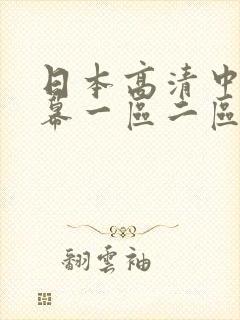 日本高清中
幕一區二區
翻雲袖